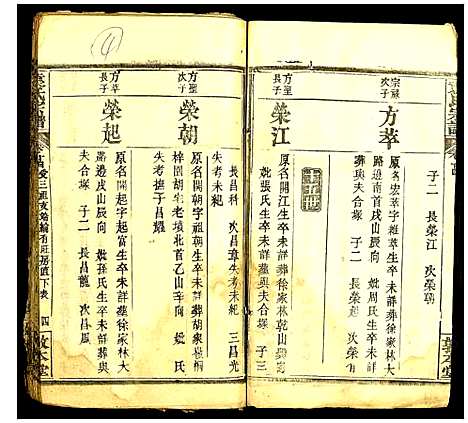 子二 長榮江 次榮朝
宗嚴次子
方萃
原名宏萃字 萃生卒未詳葬徐家林大
路邊南首戌山辰向 妣周氏生卒未詳
葬與夫合塚 子二 長榮起
五世
方聖長子
榮江
原名開江生卒未詳葬徐家林乾山
妣張氏生卒未詳葬與夫合塚 子三
長昌科 次昌璋失考未紀 三昌光
失考未紀
方聖次子
榮朝
原名開朝字祖朝生卒未詳葬胡家
梓園胡生老墳北首乙山辛向 妣 氏
失考撫子昌耀
方萃長子
榮起
原名開起字起富生卒未詳葬徐家林大
路邊戌山辰向 妣孫氏生卒未詳葬與
夫合塚 子二 長昌龍 次昌鳳
三祖支 下表
四
敦本堂
4